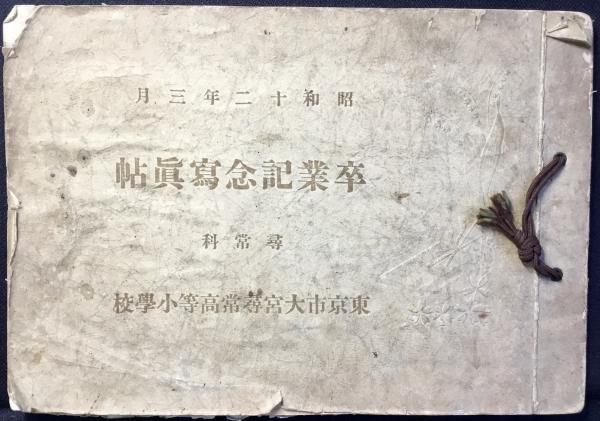 昭和十二年三月
卒業記念寫眞帖
尋常科
東京市大宮尋常高等小學校